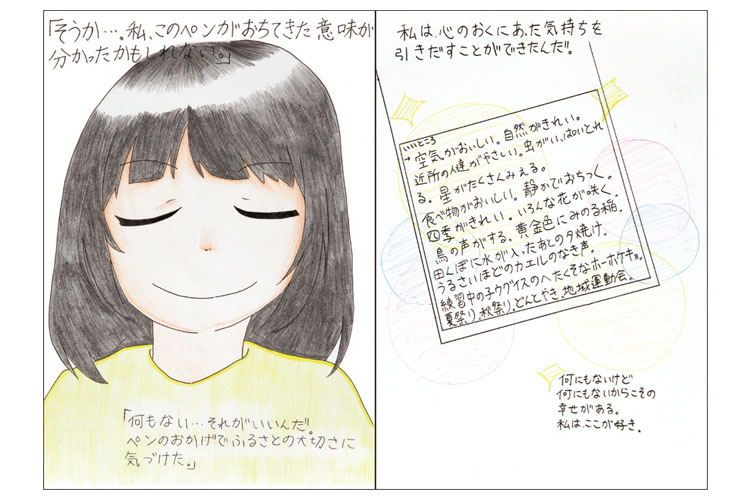 「そうか…。私、このペンがおちてきた意味が
分かったかもしれないさ。」
「何もない…それがいいんだ。
ペンのおかげでふるさとの大切さに
気づけた。」
私は、心のおくにあった気持ちを
引きだすことができたんだ。
いいところ
→空気がおいしい。自然がきれい。
近所の人達がやさしい。虫がいっぱいとれ
る。星がたくさんみえる。
食べ物がおいしい。静かでおちつく。
四季がきれい。いろんな花が咲く。
鳥の声がする。黄金色にみのる稲。
田んぼに水が入ったあとの夕焼け。
うるさいほどのカエルのなき声。
練習中の子ウグイスのへたくそなホーホケキョ。
夏祭り、秋祭り、どんどやき、地域運動会。
何にもないけど
何にもないからこその
幸せがある。
私は、ここが好き。